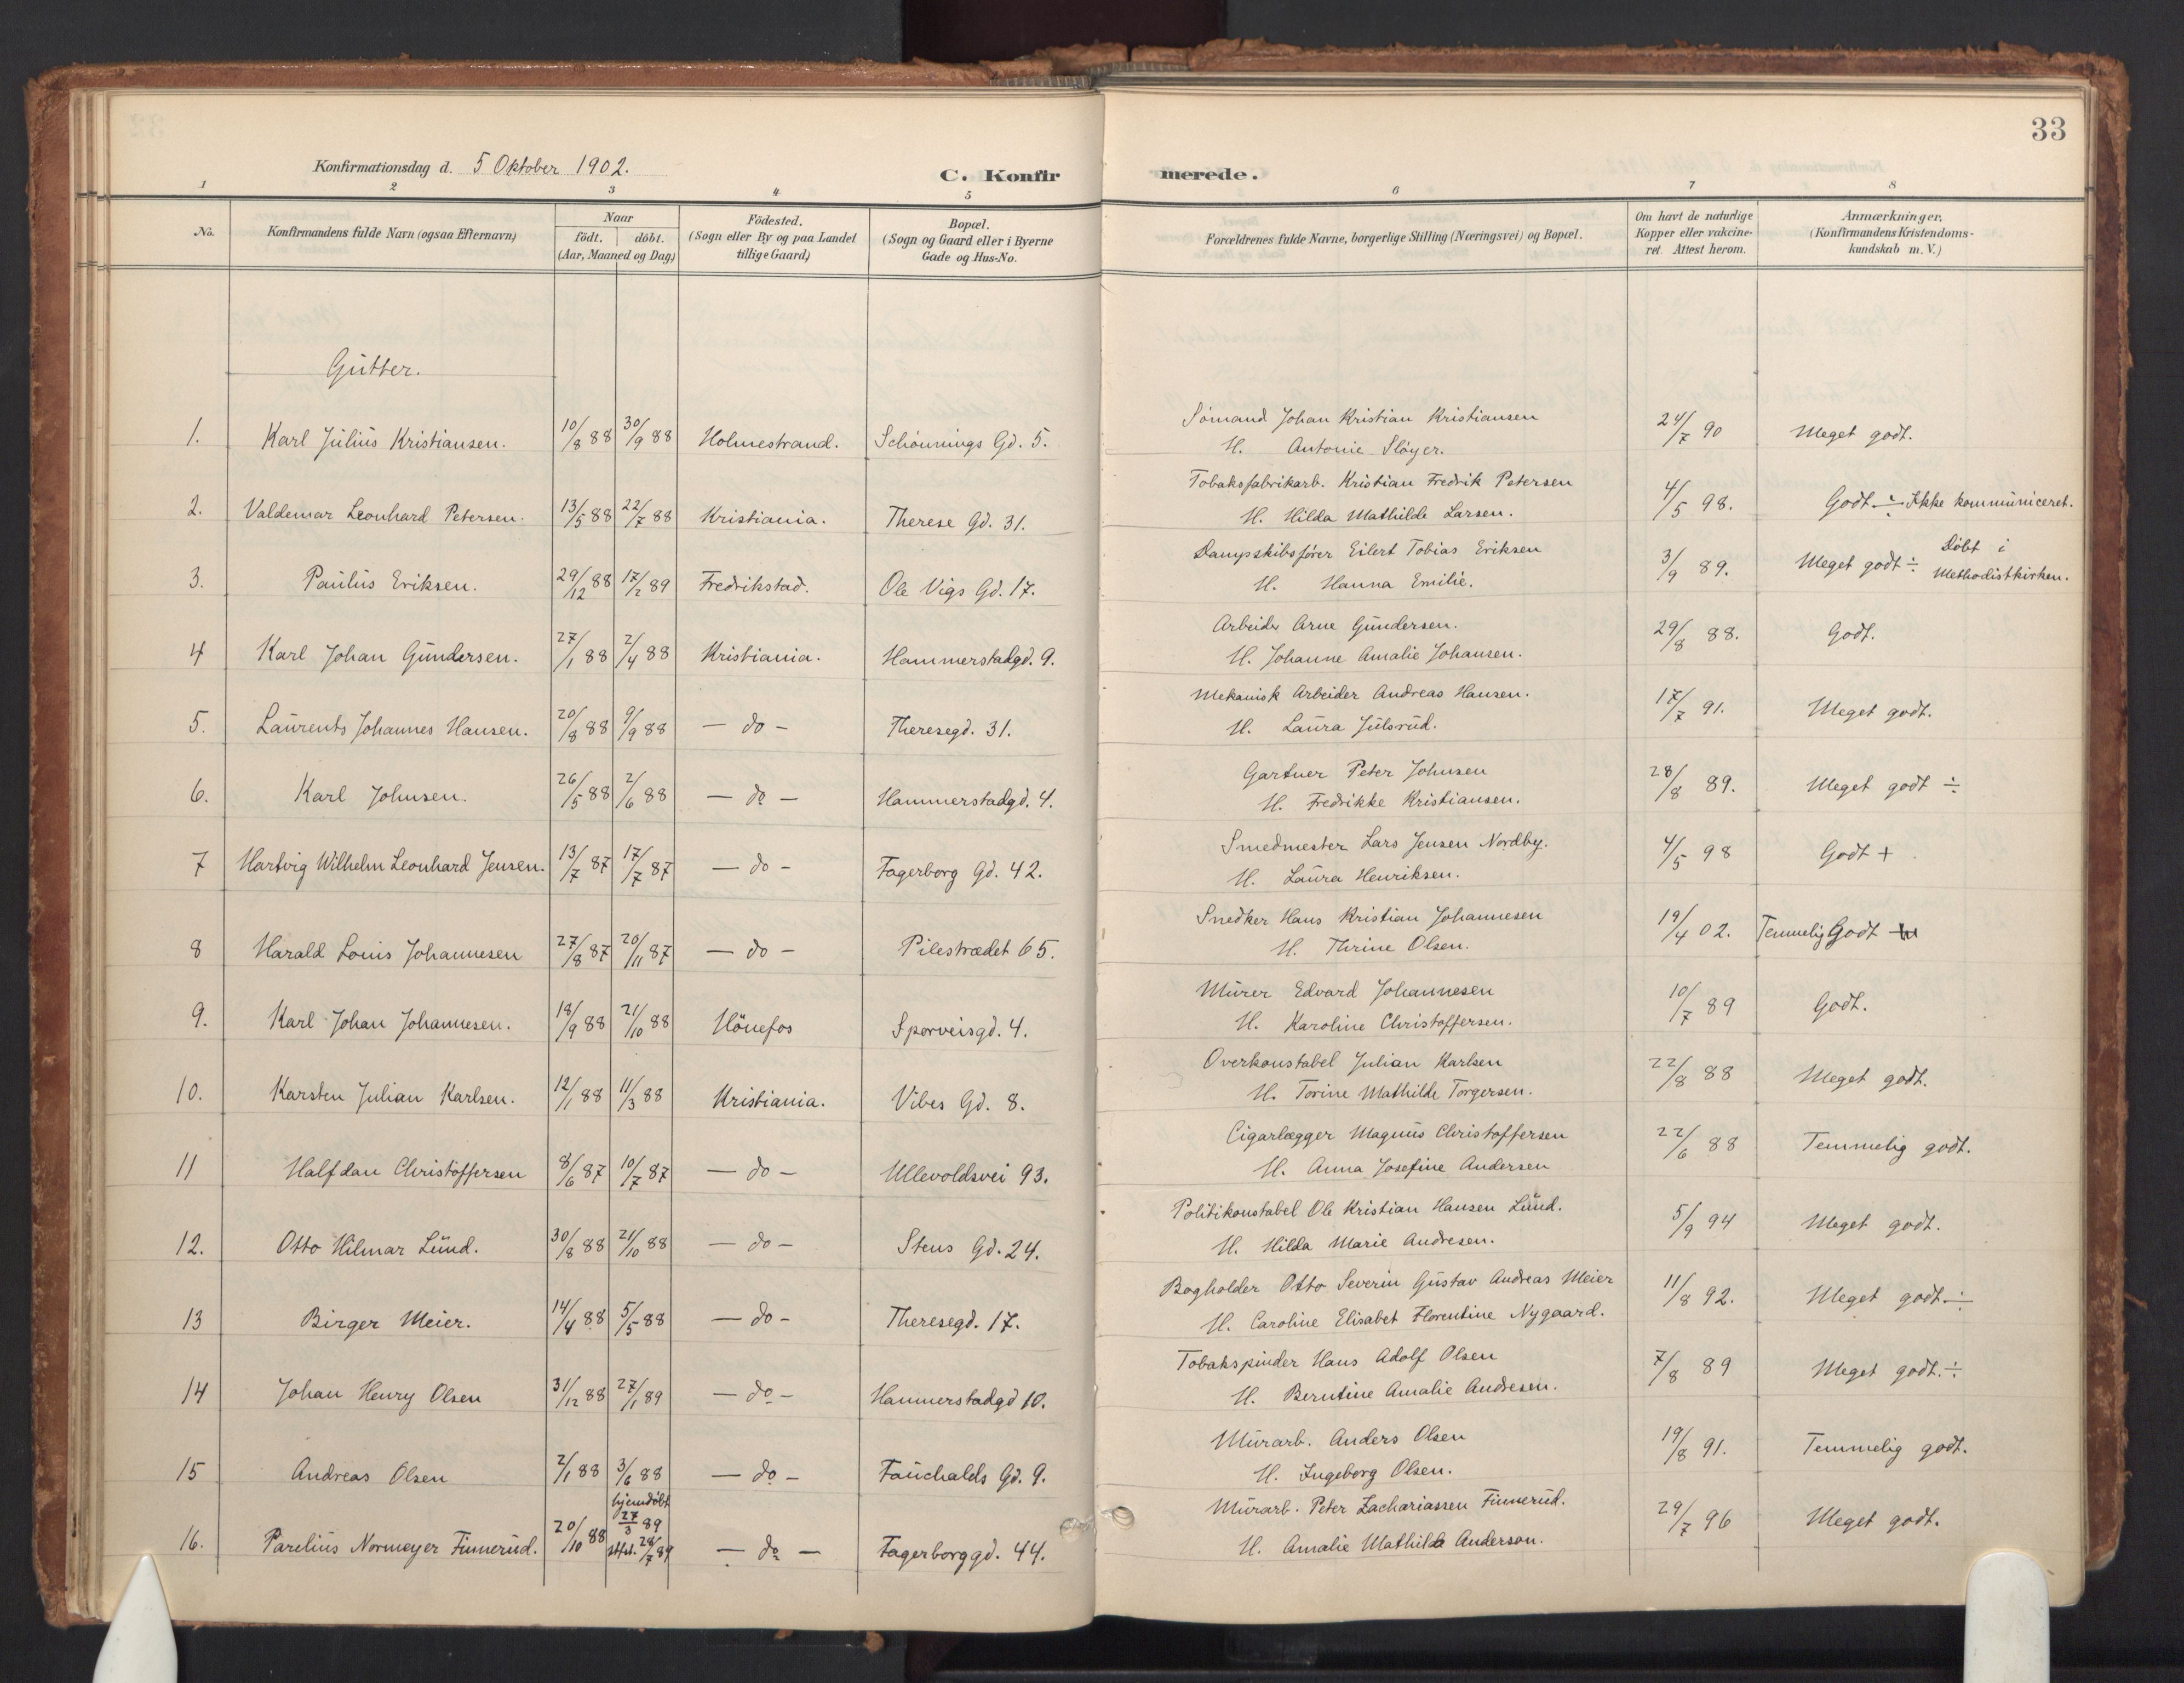 33
Konfirmationsdag d. 5 Oktober 1902.
C. Konfirmerede.
1 2 3 4 5 6 7 8
No.
Konfirmandens fulde Navn (ogsaa Efternavn)
Naar
födt. döbt.
(Aar, Maaned og Dag)
Födested.
(Sogn eller By og paa Landet
tillige Gaard)
Bopæl.
(Sogn og Gaard eller i Byerne
Gade og Hus-No.
Forældrenes fulde Navne, borgerlige Stilling (Næringsvei) og Bopæl.
Om havt de naturlige
Kopper eller vakcine-
ret. Attest herom.
Anmærkninger,
(Konfirmandens Kristendoms-
kundskab m. V.)
Gutter.
1. Karl Julius Kristiansen. 10/8 88 30/9 88 Holmestrand. Schönnings Gd. 5. Sömand Johan Kristian Kristiansen 24/7 90 Meget godt.
H. Antonie Slöyer.
2. Valdemar Leonhard Petersen. 13/5 88 22/7 88 Kristiania. Therese Gd. 31. Tobaksfabrikarb. Kristian Fredrik Petersen 4/5 98. Godt ÷ Ikke kommuniceret.
H. Hilda Mathilde Larsen.
3. Paulus Eriksen. 29/12 88 17/2 89 Fredrikstad. Ole Vigs Gd. 17. Dampskibsförer Eilert Tobias Eriksen 3/9 89. Meget godt ÷ Döbt i
H. Hanna Emilie. Methodistkirken.
4 Karl Johan Gundersen. 27/1 88 2/4 88 Kristiania. Hammerstadgd. 9. Arbeider Arne Gundersen. 29/8 88. Godt.
H. Johanne Amalie Johansen.
5. Laurents Johannes Hansen. 20/8 88 9/9 88 — do — Theresegd. 31. Mekanisk Arbeider Andreas Hansen. 17/7 91. Meget godt.
H. Laura Julsrud.
6. Karl Johnsen. 26/5 88 2/6 88 — do — Hammerstadgd. 4. Gartner Peter Johnsen 28/8 89. Meget godt ÷
H. Fredrikke Kristiansen.
7 Hartvig Wilhelm Leonhard Jensen. 13/7 87 17/7 87 — do — Fagerborg Gd. 42. Smedmester Lars Jensen Nordby. 4/5 98 Godt +
H. Laura Henriksen.
8 Harald Louis Johannesen 27/8 87 20/11 87 — do — Pilestrædet 65. Snedker Hans Kristian Johannesen 19/4 02. Temmelig Godt
H. Thrine Olsen.
9. Karl Johan Johannesen. 18/9 88 21/10 88 Hönefos Sporveisgd. 4. Murer Edvard Johannesen 10/7 89 Godt.
H. Karoline Christoffersen.
10. Karsten Julian Karlsen. 12/1 88 11/3 88 Kristiania. Vibes Gd. 8. Overkonstabel Julian Karlsen 22/8 88 Meget godt.
H. Torine Mathilde Torgersen.
11 Halfdan Christoffersen 8/6 87 10/7 87 — do — Ullevoldsvei 93. Cigarlægger Magnus Christoffersen 22/6 88 Temmelig godt.
H. Anna Josefine Andersen
12. Otto Hilmar Lund. 30/8 88 21/10 88 — do — Stens Gd. 24. Politikonstabel Ole Kristian Hansen Lund. 5/9 94 Meget godt.
H. Hilda Marie Andresen.
13 Birger Meier. 14/4 88 5/5 88 — do — Theresegd. 17. Bogholder Otto Severin Gustav Andreas Meier 11/8 92. Meget godt. ÷
H. Caroline Elisabet Florentine Nygaard.
14 Johan Henry Olsen 31/12 88 27/1 89 — do — Hammerstadgd 10. Tobakspinder Hans Adolf Olsen 7/8 89 Meget godt. ÷
H. Berntine Amalie Andresen.
15 Andreas Olsen 2/1 88 3/6 88 — do — Fauchalds Gd. 9. Murarb. Anders Olsen 19/8 91. Temmelig godt.
H. Ingeborg Olsen.
16. Parelius Normeyer Finnerud. 20/10 88 hjemdöbt 27/3 89 28/7 89 — do — Fagerborggd. 44. Murarb. Peter Zachariassen Finnerud. 29/7 96 Meget godt.
H. Amalie Mathilde Anderson.